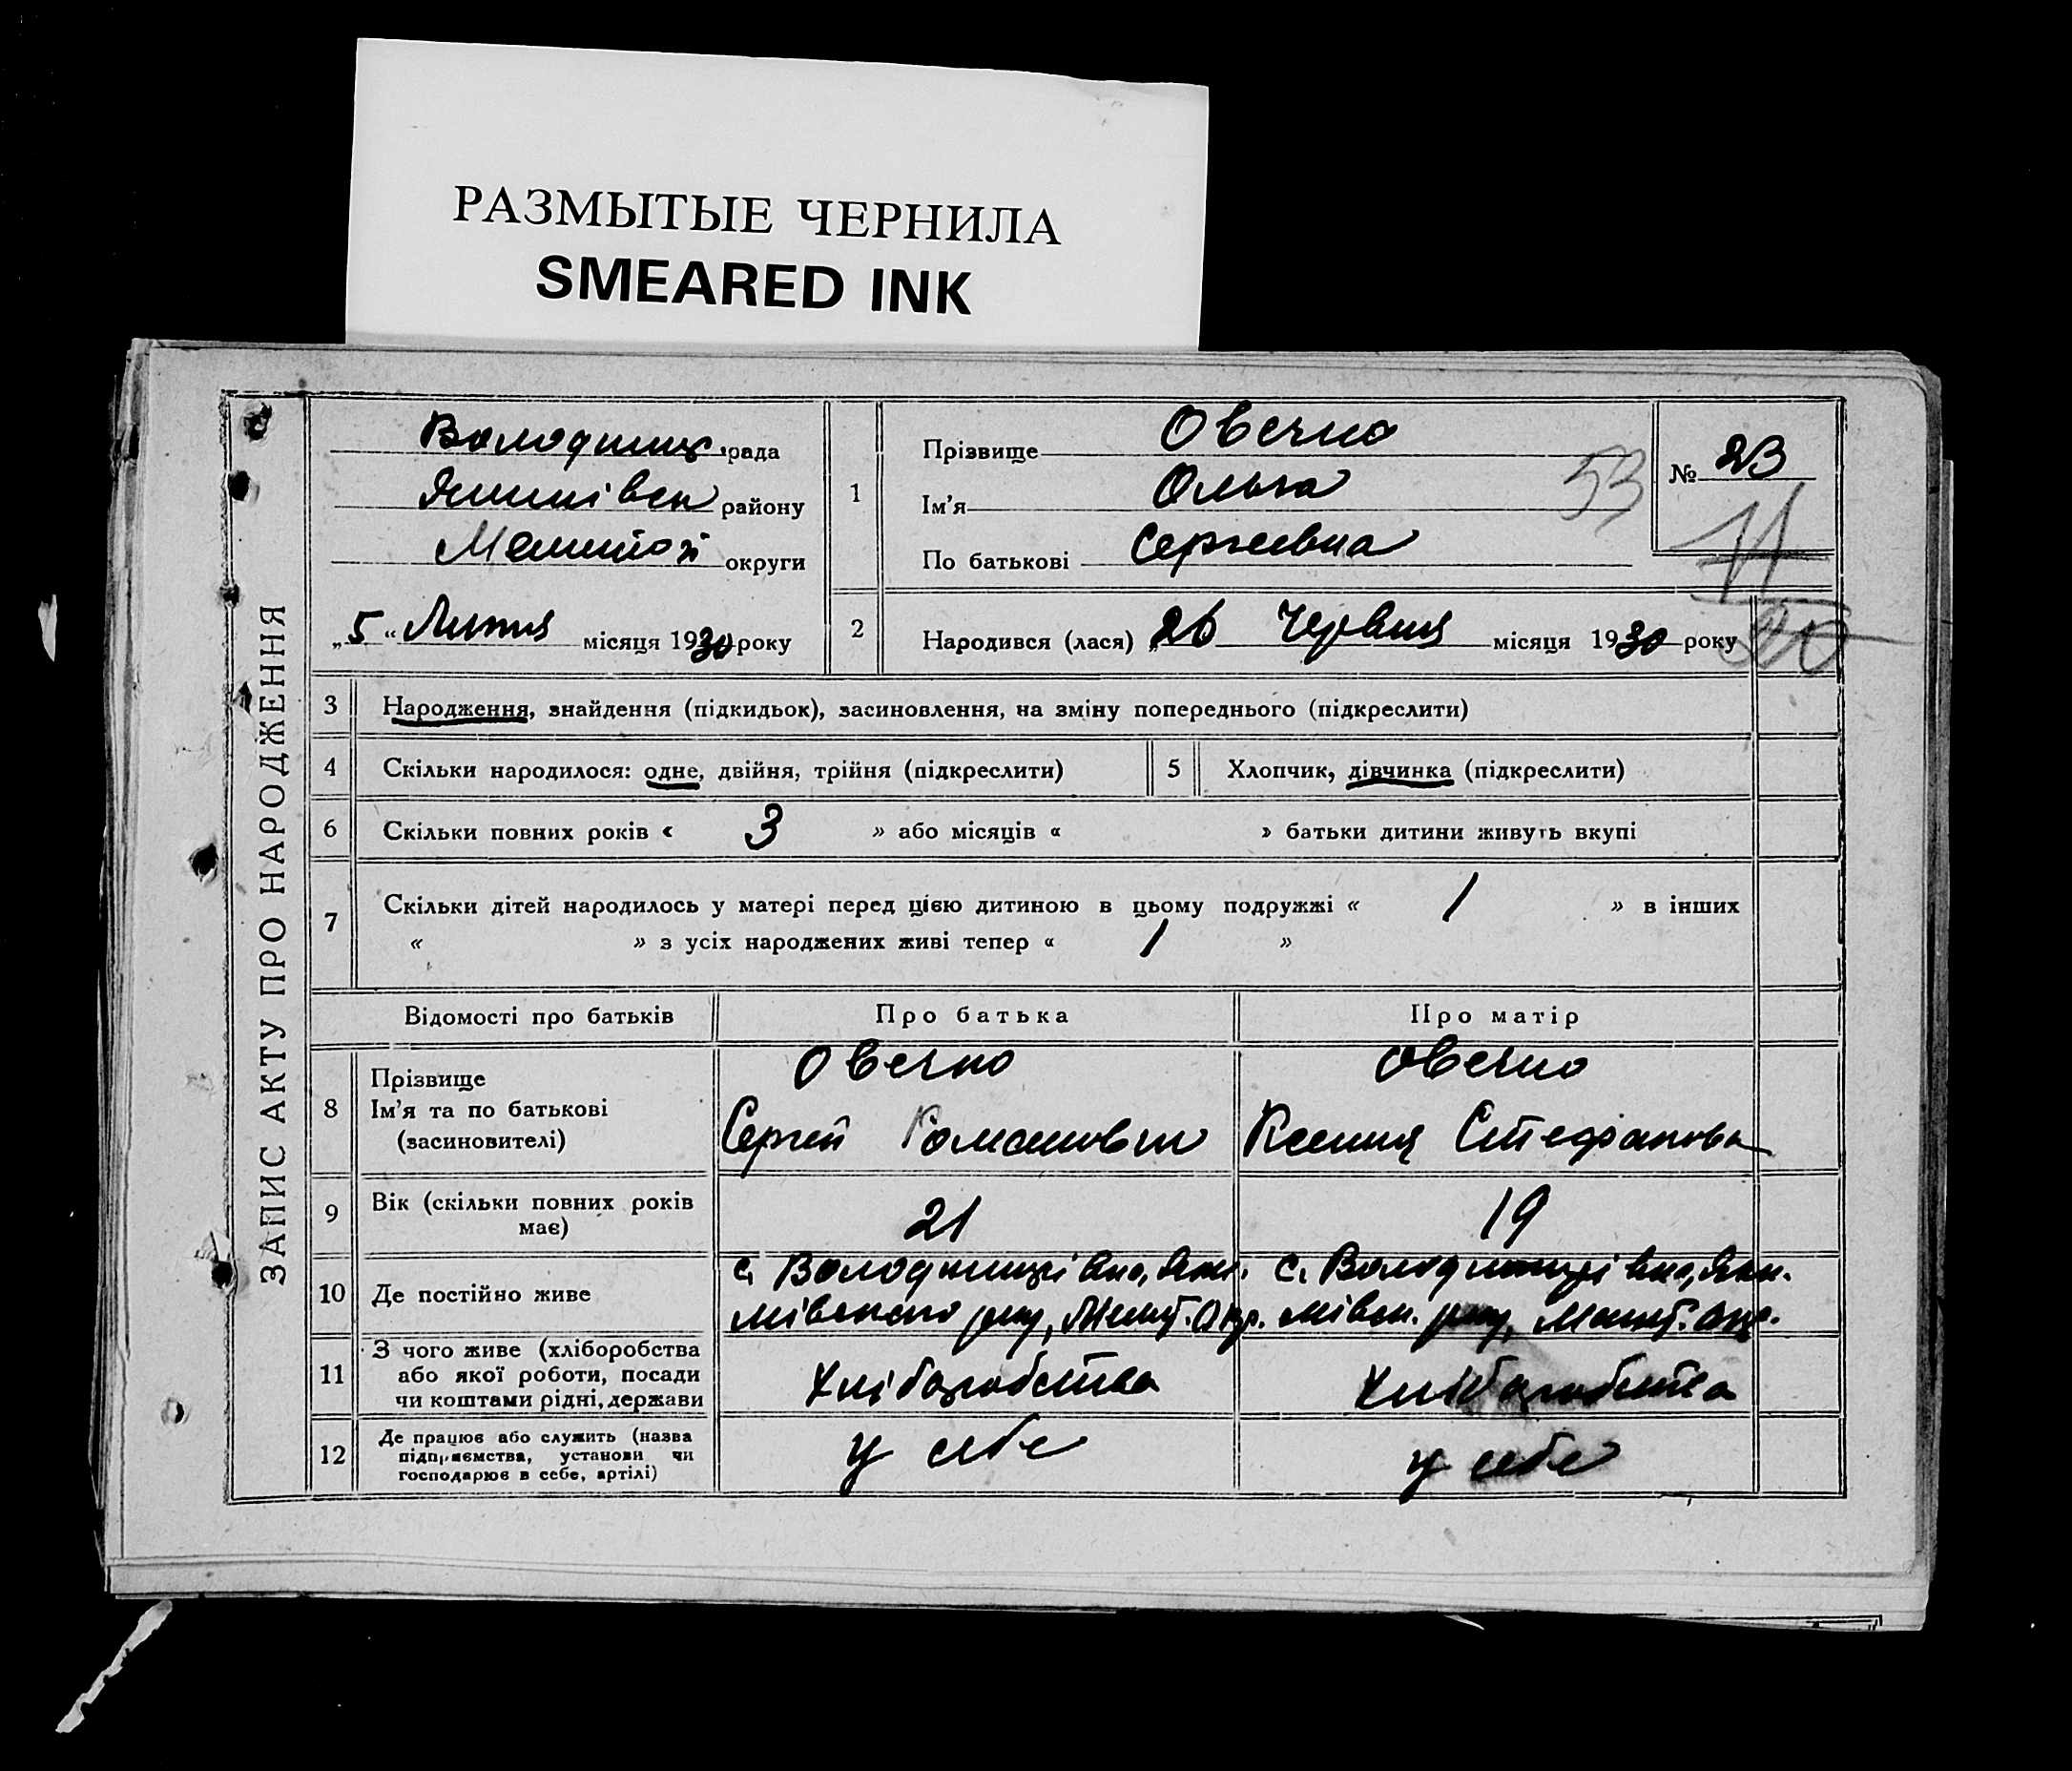 РАЗМЫТЫЕ ЧЕРНИЛА
SMEARED INK
ЗАПИС АКТУ ПРО НАРОДЖЕННЯ
рада
району
округи
„5“ Липня місяця 1930 року
1
Прізвище Овечко
Ім'я Ольга
По батькові Сергеевна
53
№ 23
11
20
2 Народився (лася) „26 Червня місяця 1930 року
3 Народження, знайдення (підкидьок), засиновлення, на зміну попереднього (підкреслити)
4 Скільки народилося: одне, двійня, трійня (підкреслити) 5 Хлопчик, дівчинка (підкреслити)
6 Скільки повних років « 3 » або місяців « » батьки дитини живуть вкупі
7 Скільки дітей народилось у матері перед цією дитиною в цьому подружжі « 1 » в інших
« » з усіх народжених живі тепер « 1 »
Відомості про батьків Про батька Про матір
8 Прізвище
Ім'я та по батькові
(засиновителі)
Овечко
Сергей Романович
Овечко
Ксения Стефановна
9 Вік (скільки повних років
має)
21 19
10 Де постійно живе
с.
с.
11 З чого живе (хліборобства
або якої роботи, посади
чи коштами рідні, держави
Хліборобства Хліборобства
12 Де працює або служить (назва
підприємства, установи чи
господарює в себе, артілі)
у себе у себе